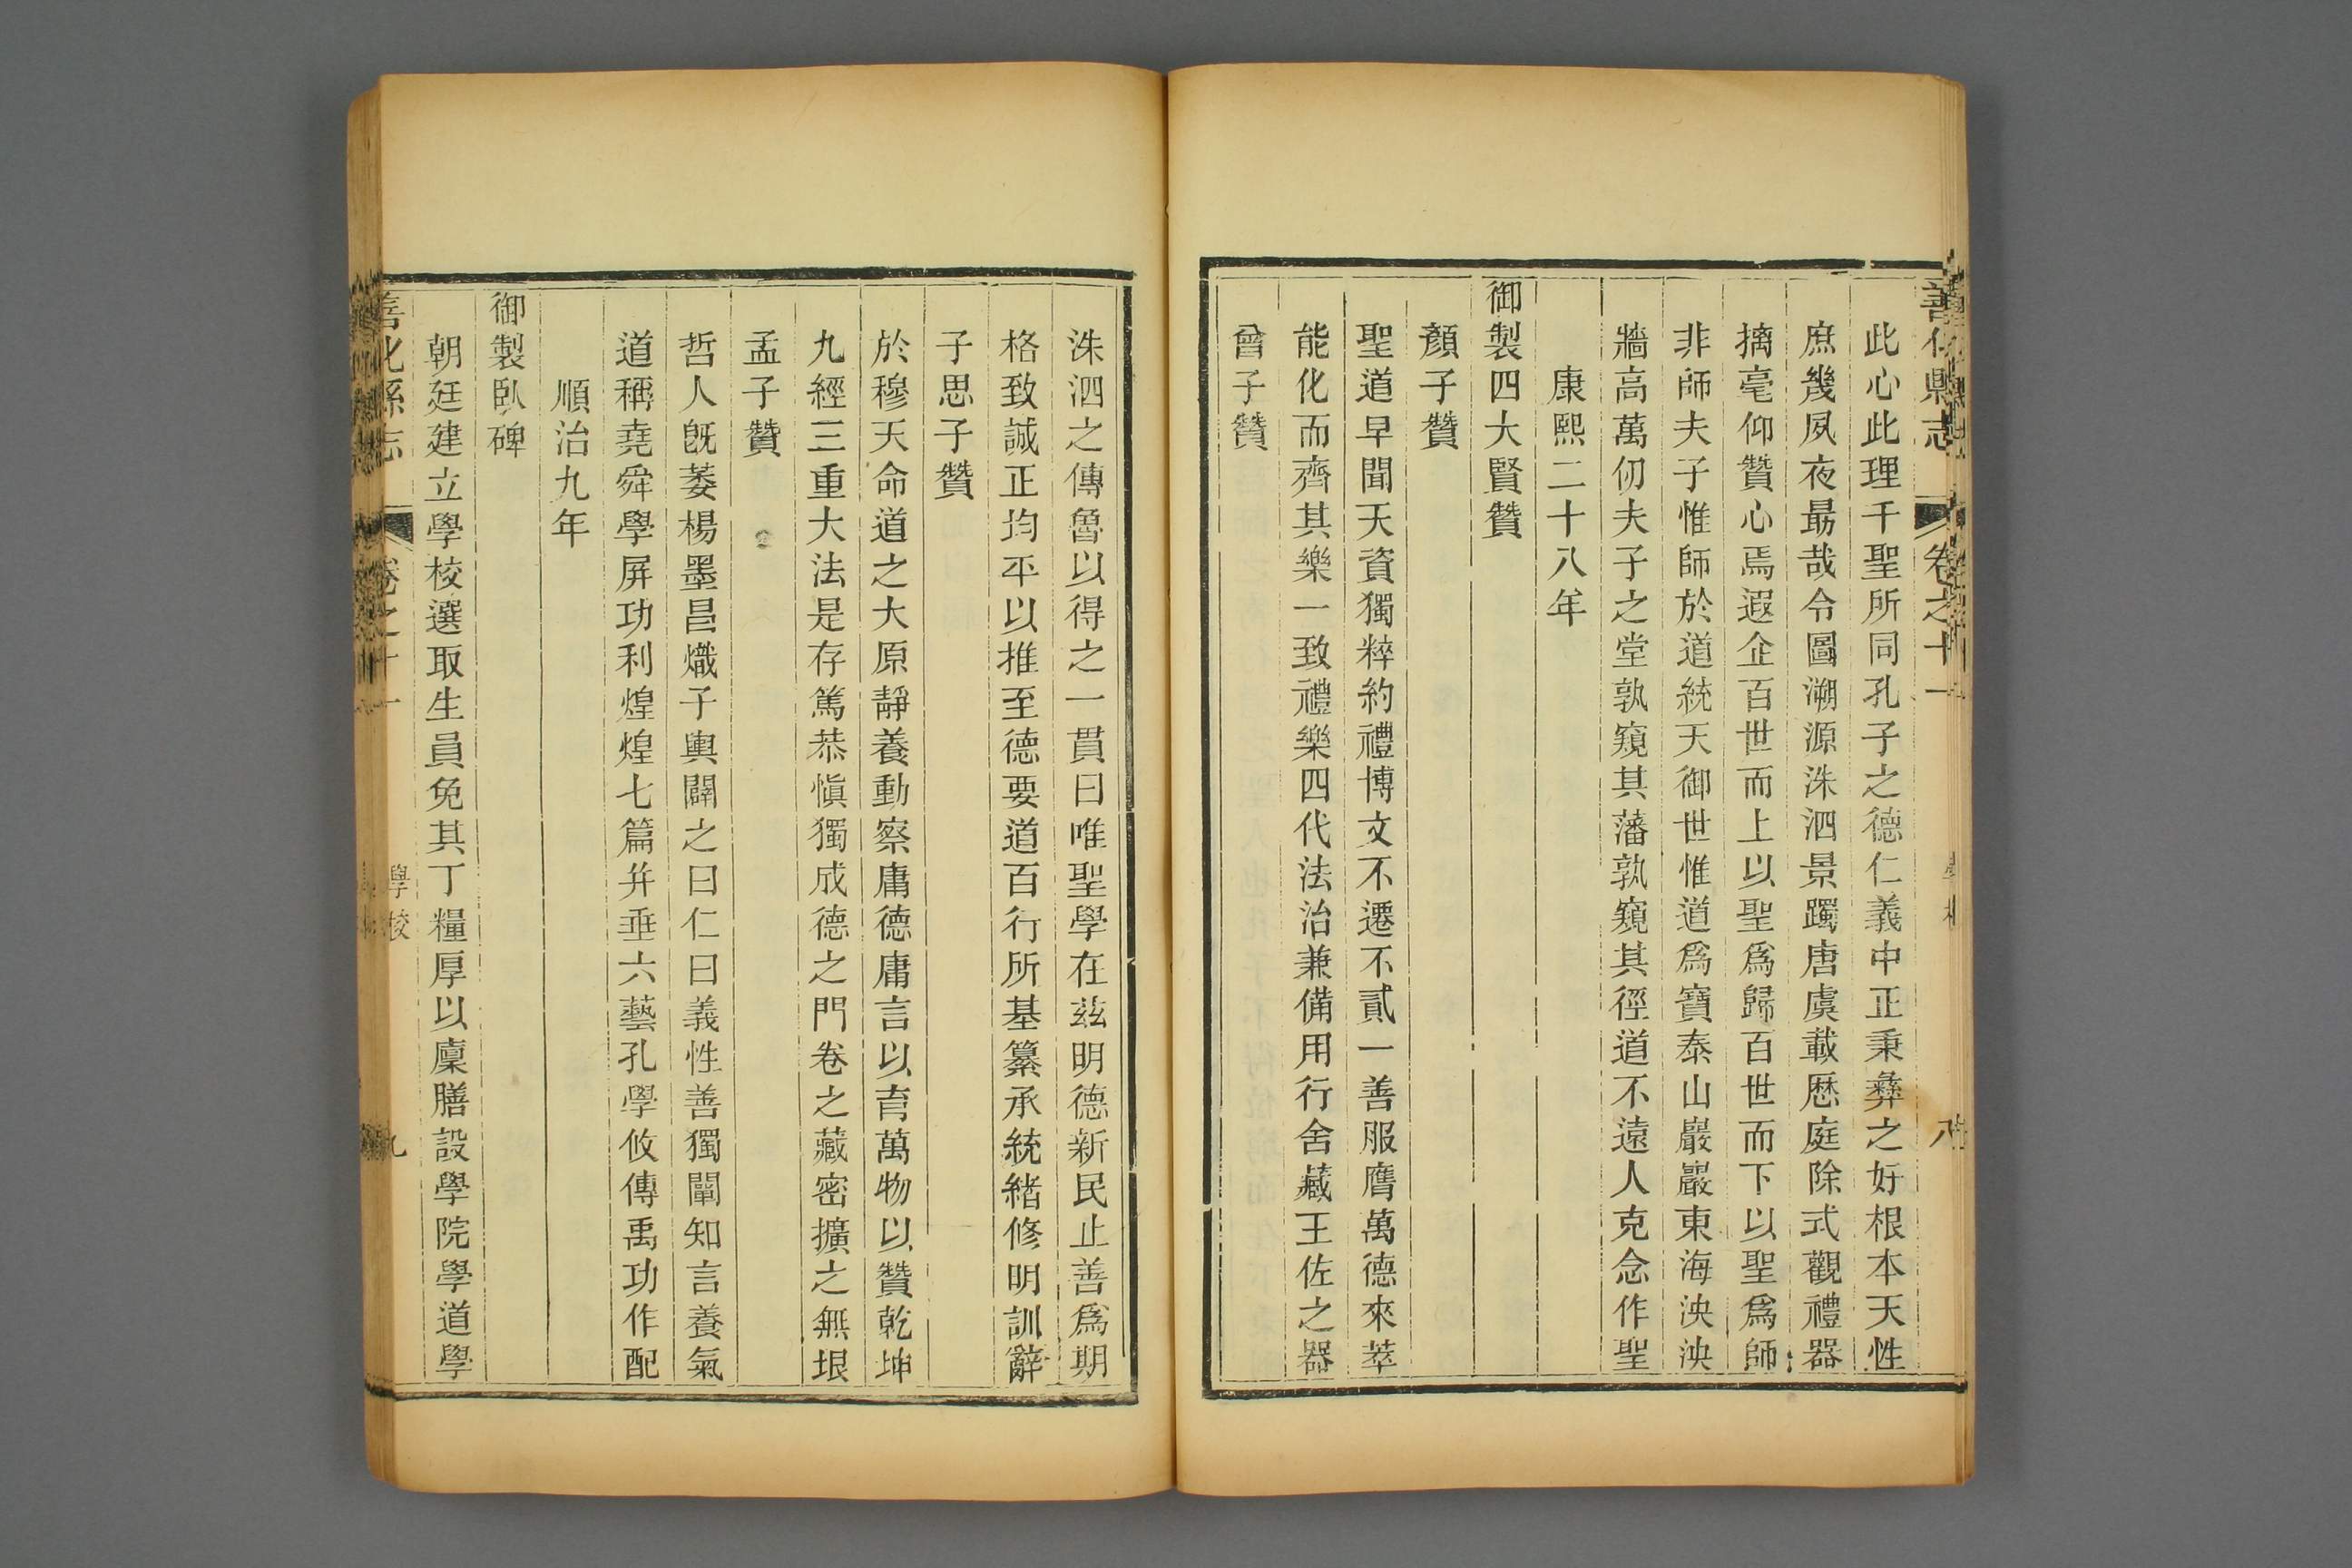 善化縣志
卷之十一
八
此心此理千聖所同孔子之德仁義中正秉彝之好根本天性
庶幾夙夜勗哉令圖溯源洙泗景躅唐虞載厯庭除式觀禮器
摛毫仰贊心焉遐企百世而上以聖爲歸百世而下以聖爲師
非師夫子惟師於道統天御世惟道爲寶泰山巖巖東海泱泱
牆高萬仞夫子之堂孰窺其藩孰窺其徑道不遠人克念作聖
康熙二十八年
御製四大賢贊
顏子贊
聖道早聞天資獨粹約禮博文不遷不貳一善服膺萬德來萃
能化而齊其樂一致禮樂四代法治兼備用行舍藏王佐之器
曾子贊
洙泗之傳魯以得之一貫曰唯聖學在茲明德新民止善爲期
格致誠正均平以推至德要道百行所基纂承統緒修明訓辭
子思子贊
於穆天命道之大原靜養動察庸德庸言以育萬物以贊乾坤
九經三重大法是存篤恭愼獨成德之門卷之藏密擴之無垠
孟子贊
哲人旣萎楊墨昌熾子輿闢之曰仁曰義性善獨闡知言養氣
道稱堯舜學屏功利煌煌七篇幷垂六藝孔學攸傳禹功作配
順治九年
御製臥碑
朝廷建立學校選取生員免其丁糧厚以廩膳設學院學道學
善化縣志
卷之十一
學校
九